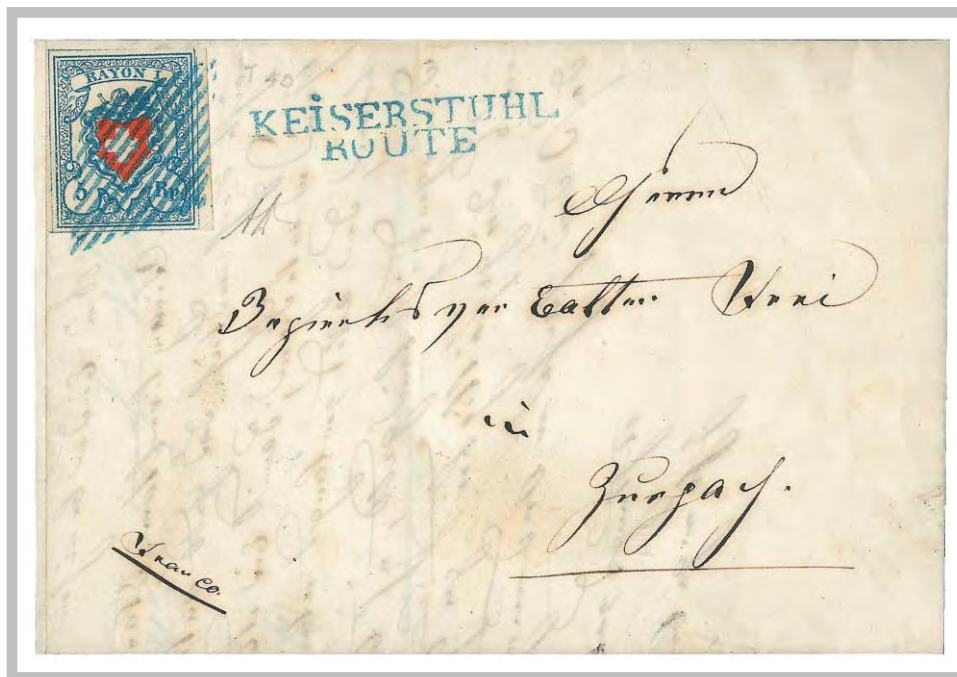 RAYON I.
5 Rp.
T 40
KEiSERSTUHL
ROUTE
Herrn
Bezirksverwalter Frei
in
Zurzach.
Franco.